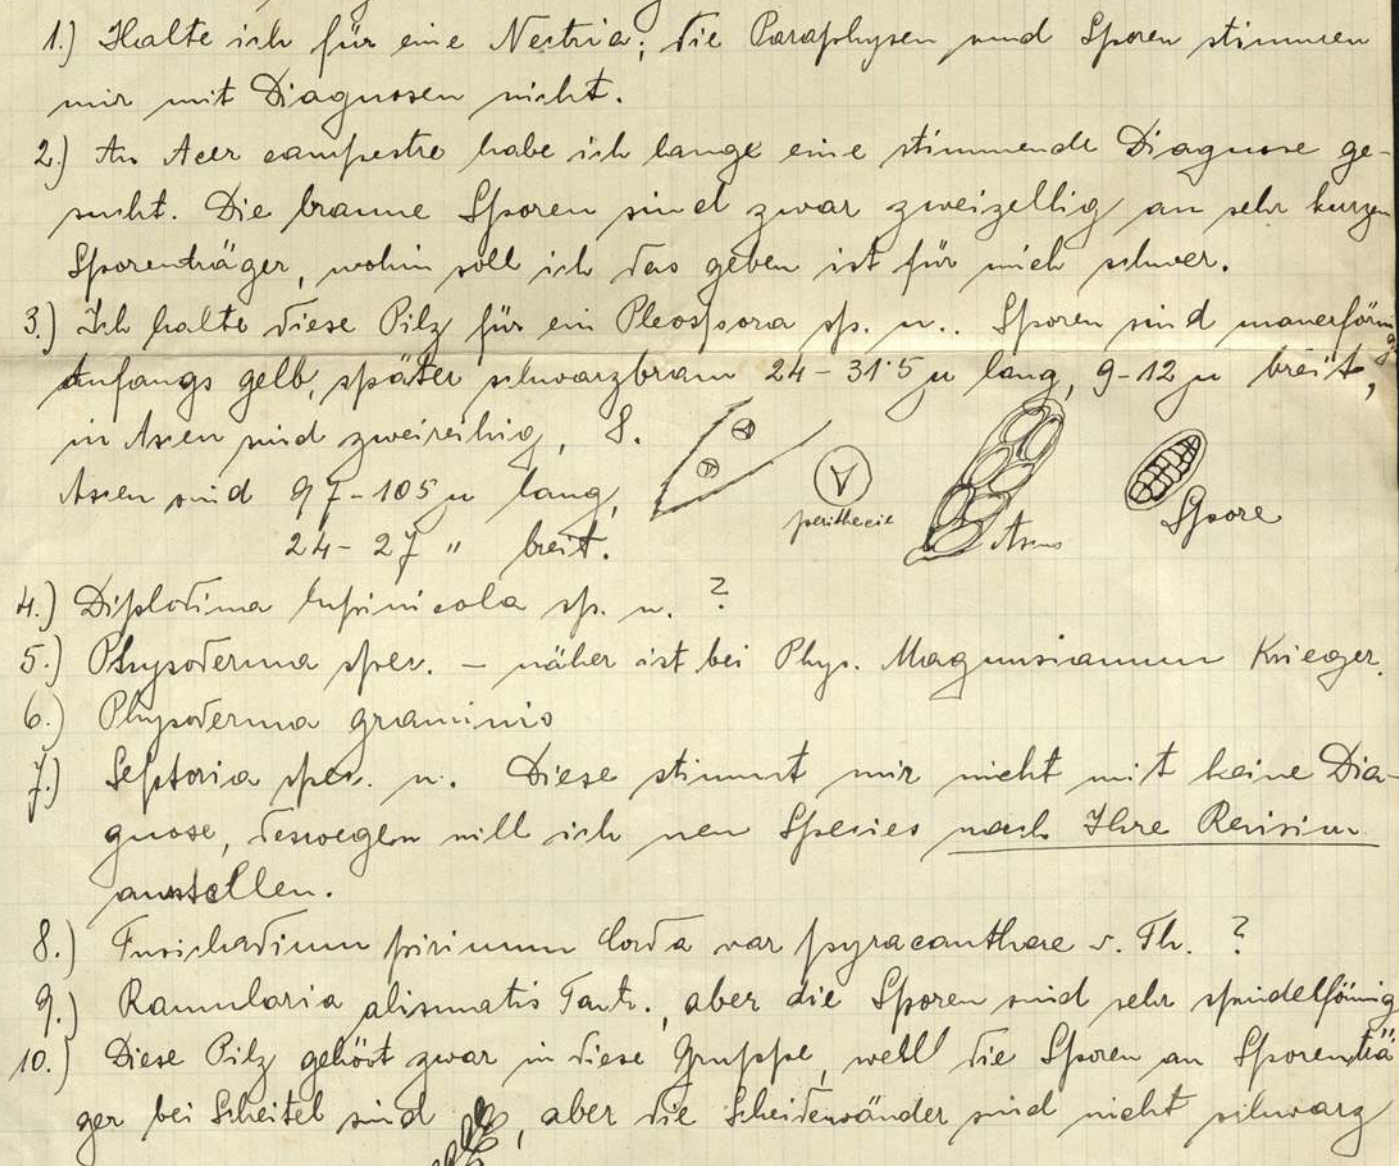 1.) Halte ich für eine Nectria; die Paraphysen und Sporen stimmen
mir mit Diagnosen nicht.
2.) An Acer campestre habe ich lange eine stimmende Diagnose ge-
sucht. Die braune Sporen sind zwar zweizellig an sehr kurzen
Sporenträger, wohin soll ich das geben ist für mich schwer.
3.) Ich halte diese Pilz für ein Pleospora sp. n.. Sporen sind mauerförmig
Anfangs gelb, später schwarzbraun 24-31·5 µ lang, 9-12 µ breit,
in Ascen sind zweireihig, 8.
Ascen sind 97-105 µ lang,
24-27 " breit.
perithecie Ascus Spore
4.) Diplodina lupinicola sp. n. ?
5.) Physoderma spec. – näher ist bei Phys. Magnusianum Krieger.
6.) Physoderma graminis
7.) Septoria spec. n. Diese stimmt mir nicht mit keine Dia-
gnose, deswegen will ich neu Species nach Ihre Revision
austellen.
8.) Fusicladium pirinum Corda var pyracanthae v. Th. ?
9.) Ramularia alismatis Fautr., aber die Sporen sind sehr spindelförmig
10.) Diese Pilz gehört zwar in diese Gruppe, well die Sporen an Sporenträ
ger bei Scheitel sind , aber die Scheidewänder sind nicht schwarz